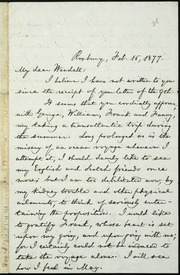 Roxbury, Feb. 15, 1877.
My dear Wendell:
I believe I have not written to you
since the receipt of your letter of the 9th.
It seems that you cordially approve,
with George, William, Frank and Fanny,
my taking a transatlantic trip during
the summer. Long prolonged as is the
misery of an ocean voyage whenever I
attempt it, I should dearly like to see
my English and dutch friends once
more; but I am too debilitated now, by
my kidney trouble and other physical
ailments, to think of seriously enter-
taining the proposition. I would like
to gratify Frank, whose heart is set
upon my going, and upon going with me;
for I certainly could not be induced to
take the voyage alone. I will see
how I feel in May.